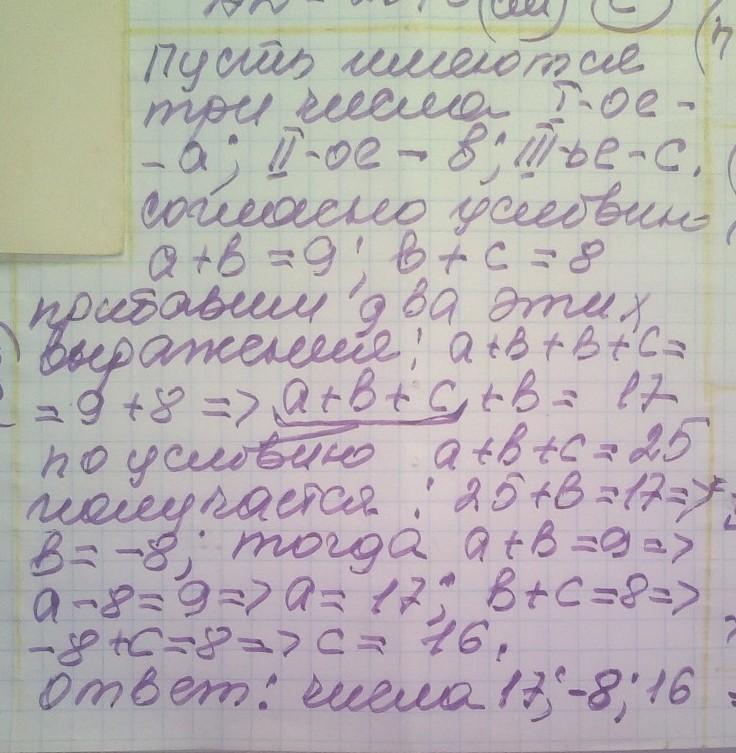 Пусть имеются
три числа I-ое -
- а; II-ое - в; III-ье - с.
согласно условию
а+в = 9; в + с = 8
прибавим два этих
выражения: а+в+в+с=
= 9+8 => а+в+с+в= 17
по условию а+в+с=25
получается: 25+в=17=>
в= -8; тогда а+в=9=>
а-8=9=> а= 17; в+с=8=>
-8+с=8=> с= 16.
ответ: числа 17; -8; 16